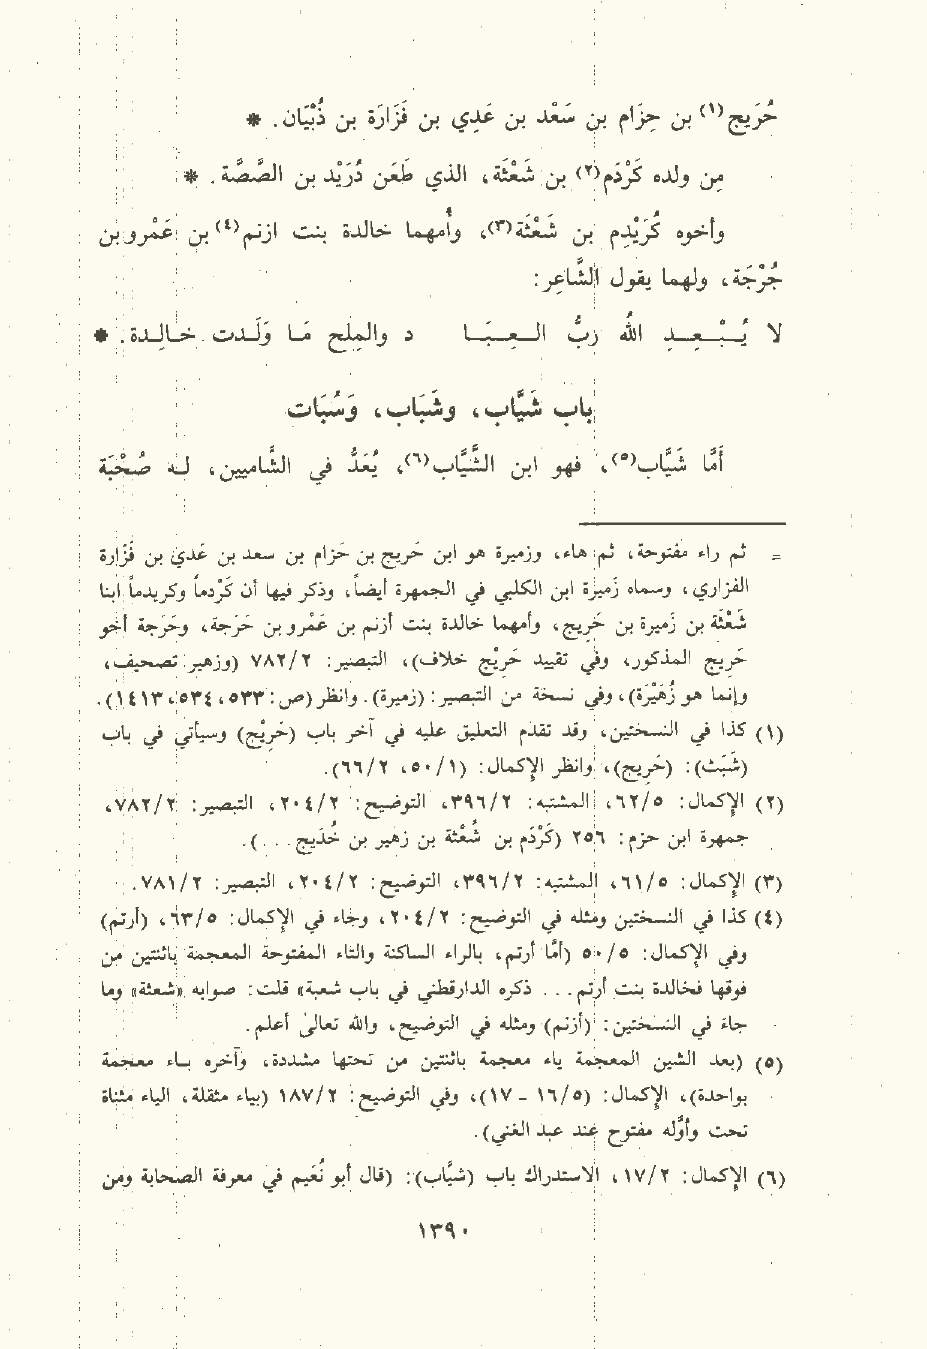 حُرَيج(١) بن حِزَام بن سَعْد بن عَدِي بن فَزَارَة بن ذُبْيَان. *
مِن ولده كَرْدَم(٢) بن شَعْثَة، الذي طَعَن دُرَيْد بن الصِّمَّة. *
وأخوه كُرَيْدِم بن شَعْثَة(٣)، وأُمهما خالدة بنت ازنم(٤) بن عَمْرو بن
جُرْجَة، ولهما يقول الشَّاعِر:
لا يُبْعِدِ اللهُ رَبُّ العِبَا د والمِلحِ مَا وَلَدت خَالِدة. *
باب شَيَّاب، وشَبَاب، وَسُبَات
أَمَّا شَيَّاب(٥)، فهو ابن الشَّيَّاب(٦)، يُعَدُّ في الشَّاميين، له صُحْبَة
= ثم راء مفتوحة، ثم هاء، وزميرة هو ابن خَريج بن خَزام بن سعد بن عَدي بن فَزَارة
الفزاري، وسماه زَميرة ابن الكلبي في الجمهرة أيضاً، وذكر فيها أن كَرْدماً وكريدماً ابنا
شَعْثَة بن زَميرة بن خَريج، وأمهما خالدة بنت أزنم بن عَمْرو بن خَرَجة، وخَرَجة أخو
خَريج المذكور، وفي تقييد خَرِيْج خلاف)، التبصير: ٧٨٢/٢ (وزهير تصحيف،
وإنما هو زُهَيْرَة)، وفي نسخة من التبصير: (زميرة). وانظر (ص: ٥٣٣، ٥٣٤، ١٤١٣).
(١) كذا في النسختين، وقد تقدم التعليق عليه في آخر باب (خَرِيْج) وسيأتي في باب
(شَبَث): (خَريج)، وانظر الإكمال: (٥٠/١، ٦٦/٢).
(٢) الإكمال: ٦٢/٥، المشتبه: ٣٩٦/٢، التوضيح: ٢٠٤/٢، التبصير: ٧٨٢/٢،
جمهرة ابن حزم: ٢٥٦ (كَرْدَم بن شُعْثة بن زهير بن خُدَيج...).
(٣) الإكمال: ٦١/٥، المشتبه: ٣٩٦/٢، التوضيح: ٢٠٤/٢، التبصير: ٧٨١/٢.
(٤) كذا في النسختين ومثله في التوضيح: ٢٠٤/٢، وجاء في الإكمال: ٦٣/٥، (أرتم)
وفي الإكمال: ٥٠/٥ (أمَّا أرتم، بالراء الساكنة والتاء المفتوحة المعجمة باثنتين من
فوقها فخالدة بنت أرتم... ذكره الدارقطني في باب شعبة» قلت: صوابه «شعثة» وما
جاء في النسختين: (أزنم) ومثله في التوضيح، والله تعالى أعلم.
(٥) (بعد الشين المعجمة ياء معجمة باثنتين من تحتها مشددة، وآخره باء معجمة
بواحدة)، الإكمال: (١٦/٥ - ١٧)، وفي التوضيح: ١٨٧/٢ (بياء مثقلة، الياء مثناة
تحت وأوَّله مفتوح عند عبد الغني).
(٦) الإكمال: ١٧/٢، الاستدراك باب (شيَّاب): (قال أبو نُعَيم في معرفة الصحابة ومن
١٣٩٠